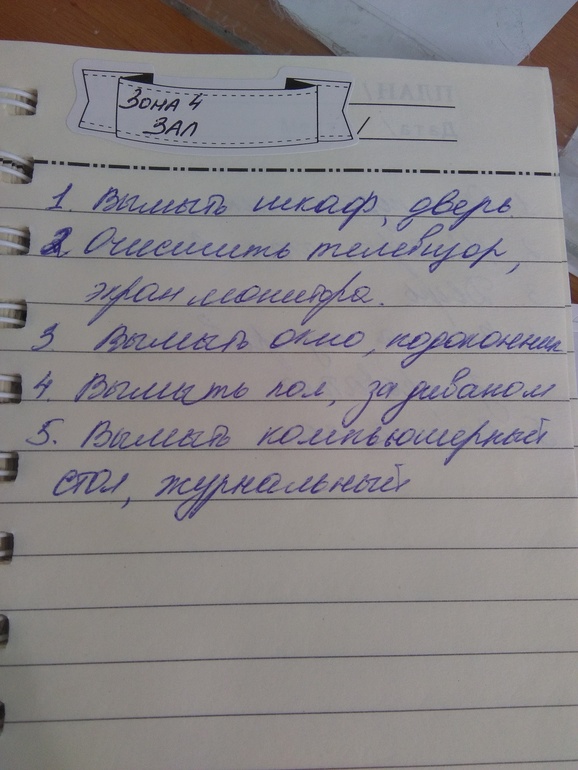 Зона 4
Зал
1. Вымыть шкаф, дверь
2. Очистить телевизор,
экран монитора.
3. Вымыть окно, подоконник
4. Вымыть пол, за диваном
5. Вымыть компьютерный
стол, журнальный